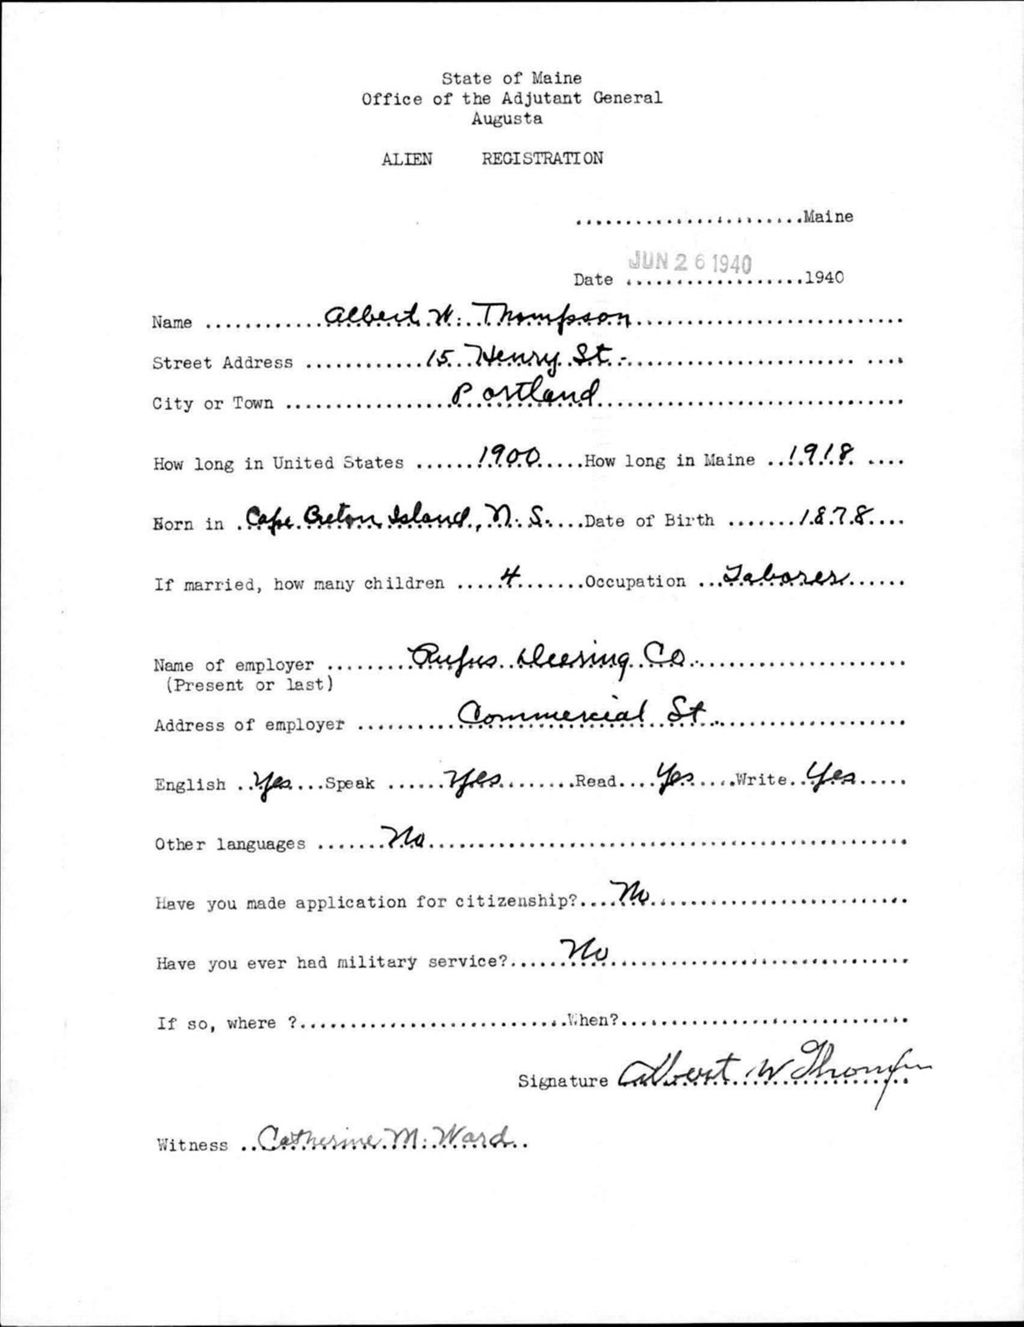 State of Maine
Office of the Adjutant General
Augusta
ALIEN REGISTRATION
.......................Maine
JUN 26 1940
Date ..................1940
Name ............Albert W. Thompson...........................
Street Address ............15 Henry St.-.............................
City or Town .................Portland...............................
How long in United States ......1900.....How long in Maine ..1918 ....
Born in .Cape Breton Island, N. S.....Date of Birth .......1878....
If married, how many children .....4.......Occupation ...Laborer......
Name of employer .........Rufus Deering Co......................
(Present or last)
Address of employer ..........Commercial St....................
English ..Yes...Speak ......Yes........Read....Yes.....Write..Yes.....
Other languages .......No.......................................
Have you made application for citizenship?....No.........................
Have you ever had military service?......No..............................
If so, where ?...........................When?............................
Signature Albert W Thompson
Witness ..Catherine M. Ward..